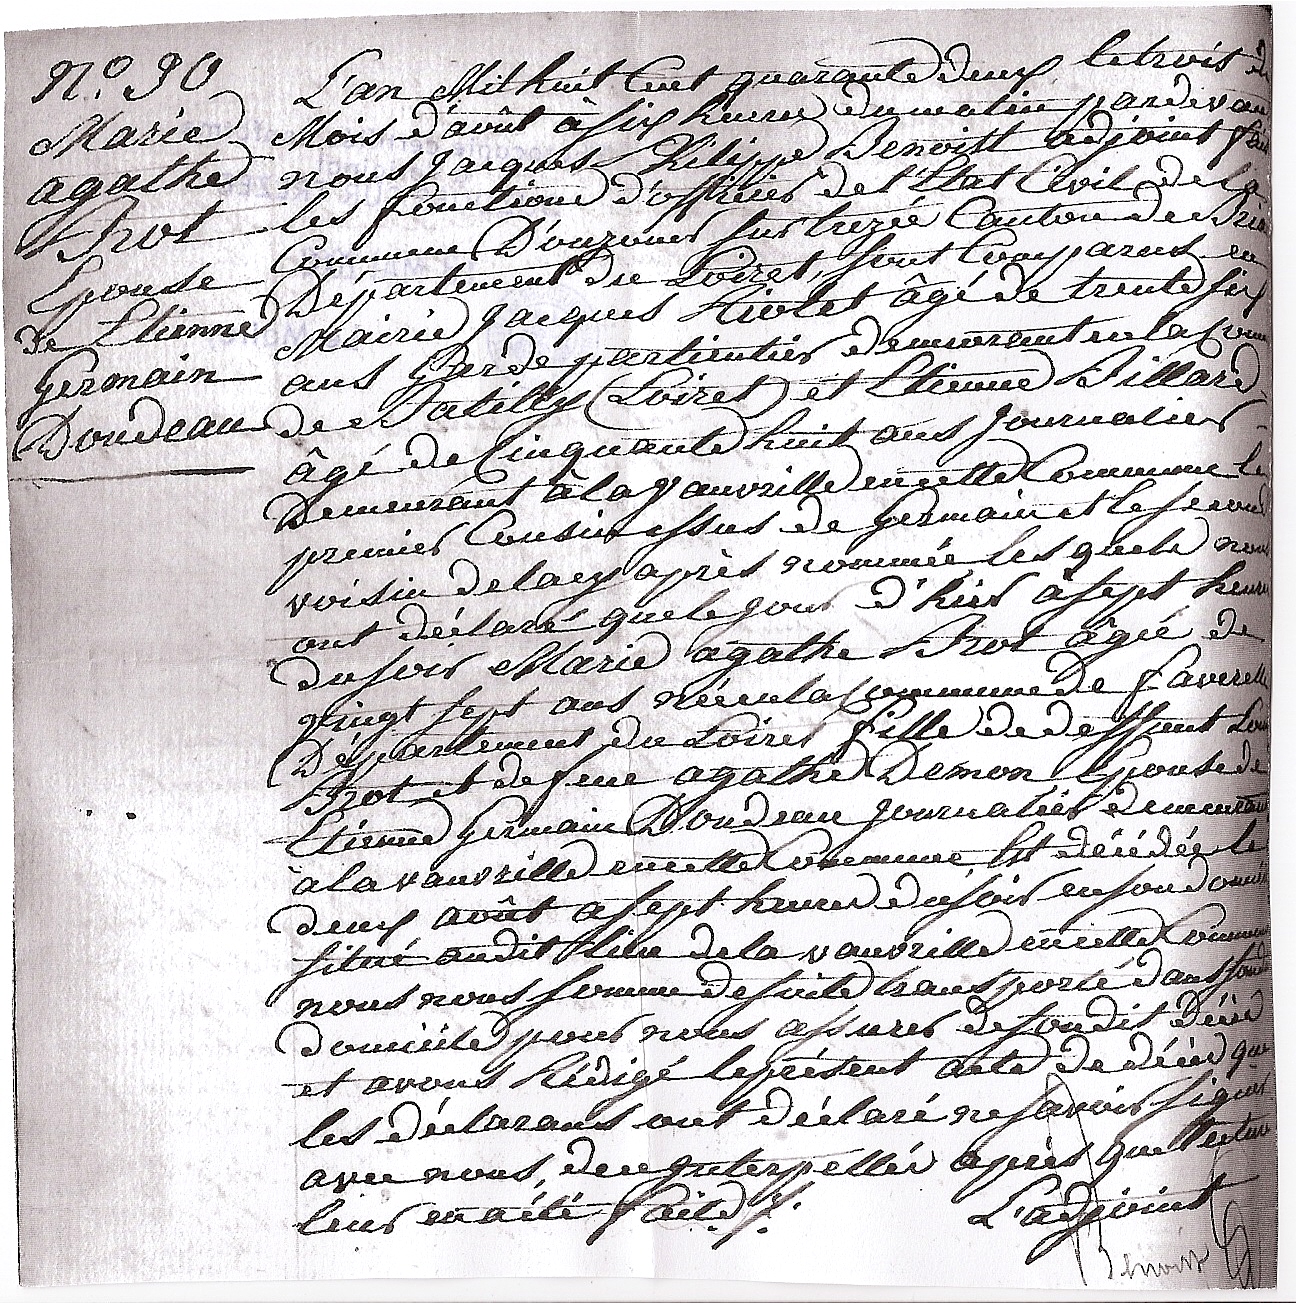 N.º 30
Marie
agathe
Epouse
de Etienne
Germain
Dondeau
L'an Mil huit Cent quarante deux le trois du
Mois d'août à six heures du matin par devant
nous Jacques Philippe Benoist adjoint
les fonctions d'officier de l'Etat Civil de la
Commune D'ouzouer sur trezée Canton de
Département du Loiret, sont Comparus en
Mairie Jacques âgé de trente six
ans Garde particulier demeurant en la
de Batilly (Loiret) et Etienne Billard
âgé de Cinquante huit ans Journalier
Demeurant à la vauvrille en cette Commune le
premier Cousin issus de Germain et le second
voisin de la cy après nommée les quels nous
ont déclaré que le jour d'hier à sept heures
du soir Marie agathe âgée de
vingt sept ans née en la Commune de faverelle
Département du Loiret fille de deffunt
et de feue agathe Demon Epouse de
Etienne Germain Dondeau Journalier demeurant
a la vauvrille en cette Commune Est décédée le
deux août a sept heures du soir en son
situé audit lieu de la vauvrille en cette Commune
nous nous somme de suite transporté dans
domicile pour nous assurer de son dit décès
et avons Rédigé le présent acte de décès que
les déclarans ont déclaré ne savoir signer
avec nous, de ce Interpellés après que lecture
leur en a été faite ./.
L'adjoint
Benoist